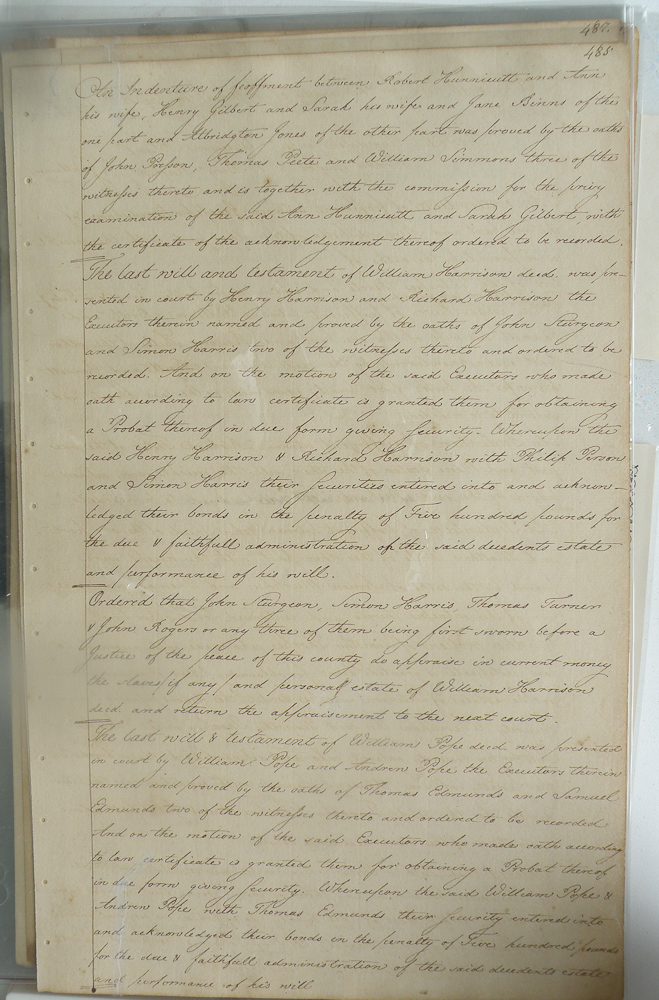 487.
485
An Indenture of feoffment between Robert Hunnicutt and Ann
his wife, Henry Gilbert and Sarah his wife and Jane Binns of the
one part and Albridgton Jones of the other part was proved by the oaths
of John Presson, Thomas Peete and William Simmons three of the
witnesses thereto and is together with the commission for the privy
examination of the said Ann Hunnicutt and Sarah Gilbert, with
the certificate of the acknowledgement thereof ordered to be recorded.
The last will and testament of William Harrison decd. was pre-
sented in court by Henry Harrison and Richard Harrison the
Executors therein named and proved by the oaths of John Sturgeon
and Simon Harris two of the witnesses thereto and ordered to be
recorded. And on the motion of the said Executors who made
oath according to law certificate is granted them for obtaining
a Probat thereof in due form giving security. Whereupon the
said Henry Harrison & Richard Harrison with Philip Person
and Simon Harris their securities entered into and acknow-
ledged their bonds in the penalty of Five hundred pounds for
the due & faithfull administration of the said decedents estate
and performance of his will.
Ordered that John Sturgeon, Simon Harris, Thomas Turner
& John Rogers or any three of them being first sworn before a
Justice of the peace of this county do appraise in current money
the slaves (if any) and personal estate of William Harrison
decd and return the appraisement to the next court.
The last will & testament of William Pope decd was presented
in court by William Pope and Andrew Pope the Executors therein
named and proved by the oaths of Thomas Edmunds and Samuel
Edmunds two of the witnesses thereto and ordered to be recorded
And on the motion of the said Executors who made oath according
to law certificate is granted them for obtaining a Probat thereof
in due form giving security. Whereupon the said William Pope &
Andrew Pope with Thomas Edmunds their security entered into
and acknowledged their bonds in the penalty of Five hundred pounds
for the due & faithfull administration of the said decedents estate
and performance of his will